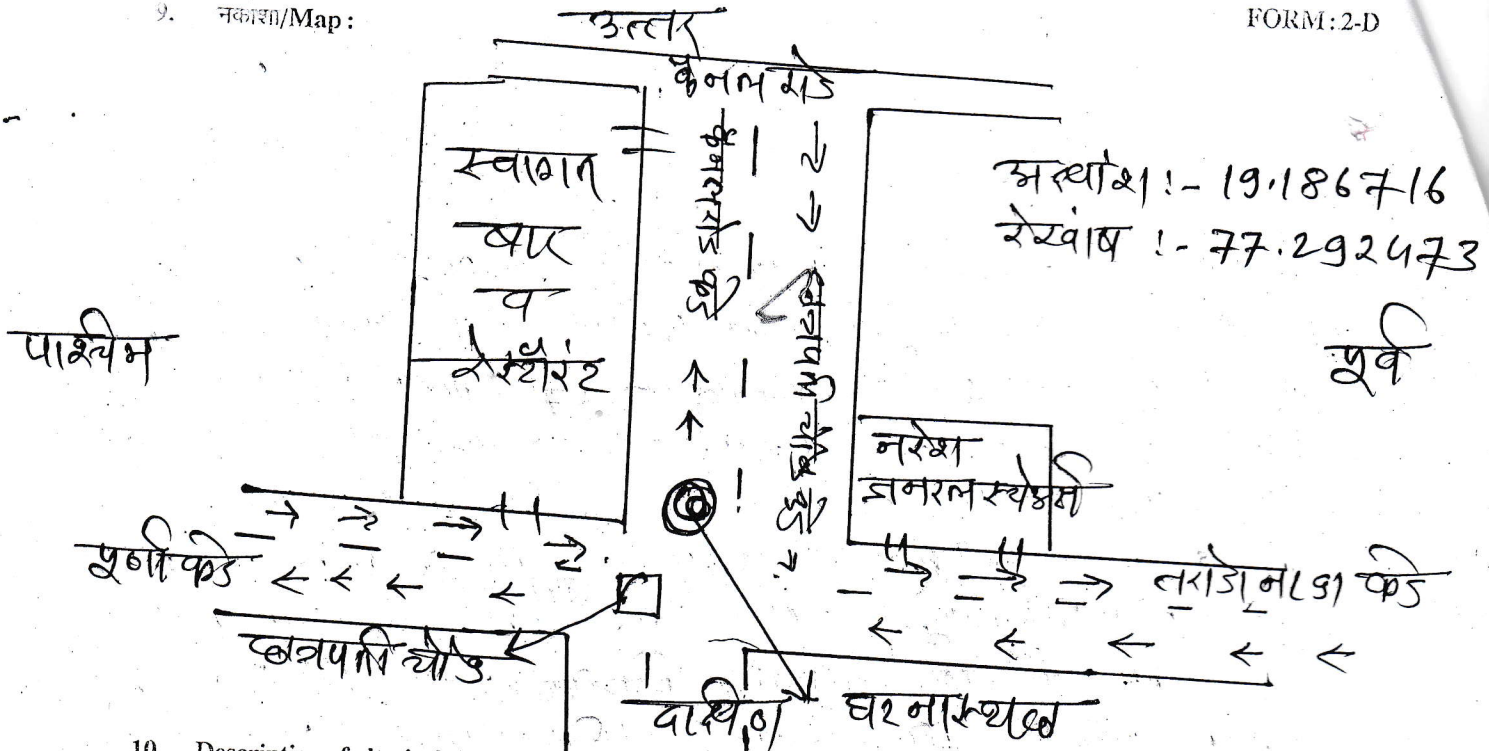 9. नकाशा/Map :
FORM : 2-D
उत्तर
कॅनल रोड
स्वागत
बार
व
रेस्टॉरंट
अक्षांश :- 19.186716
रेखांष :- 77.292473
पाश्चिम
पूर्व
नरेश
जनरल स्टोअर्स
पूर्णा कडे
तरोडा नाका कडे
छत्रपती चौक
दाक्षिण
घटनास्थळ
10.